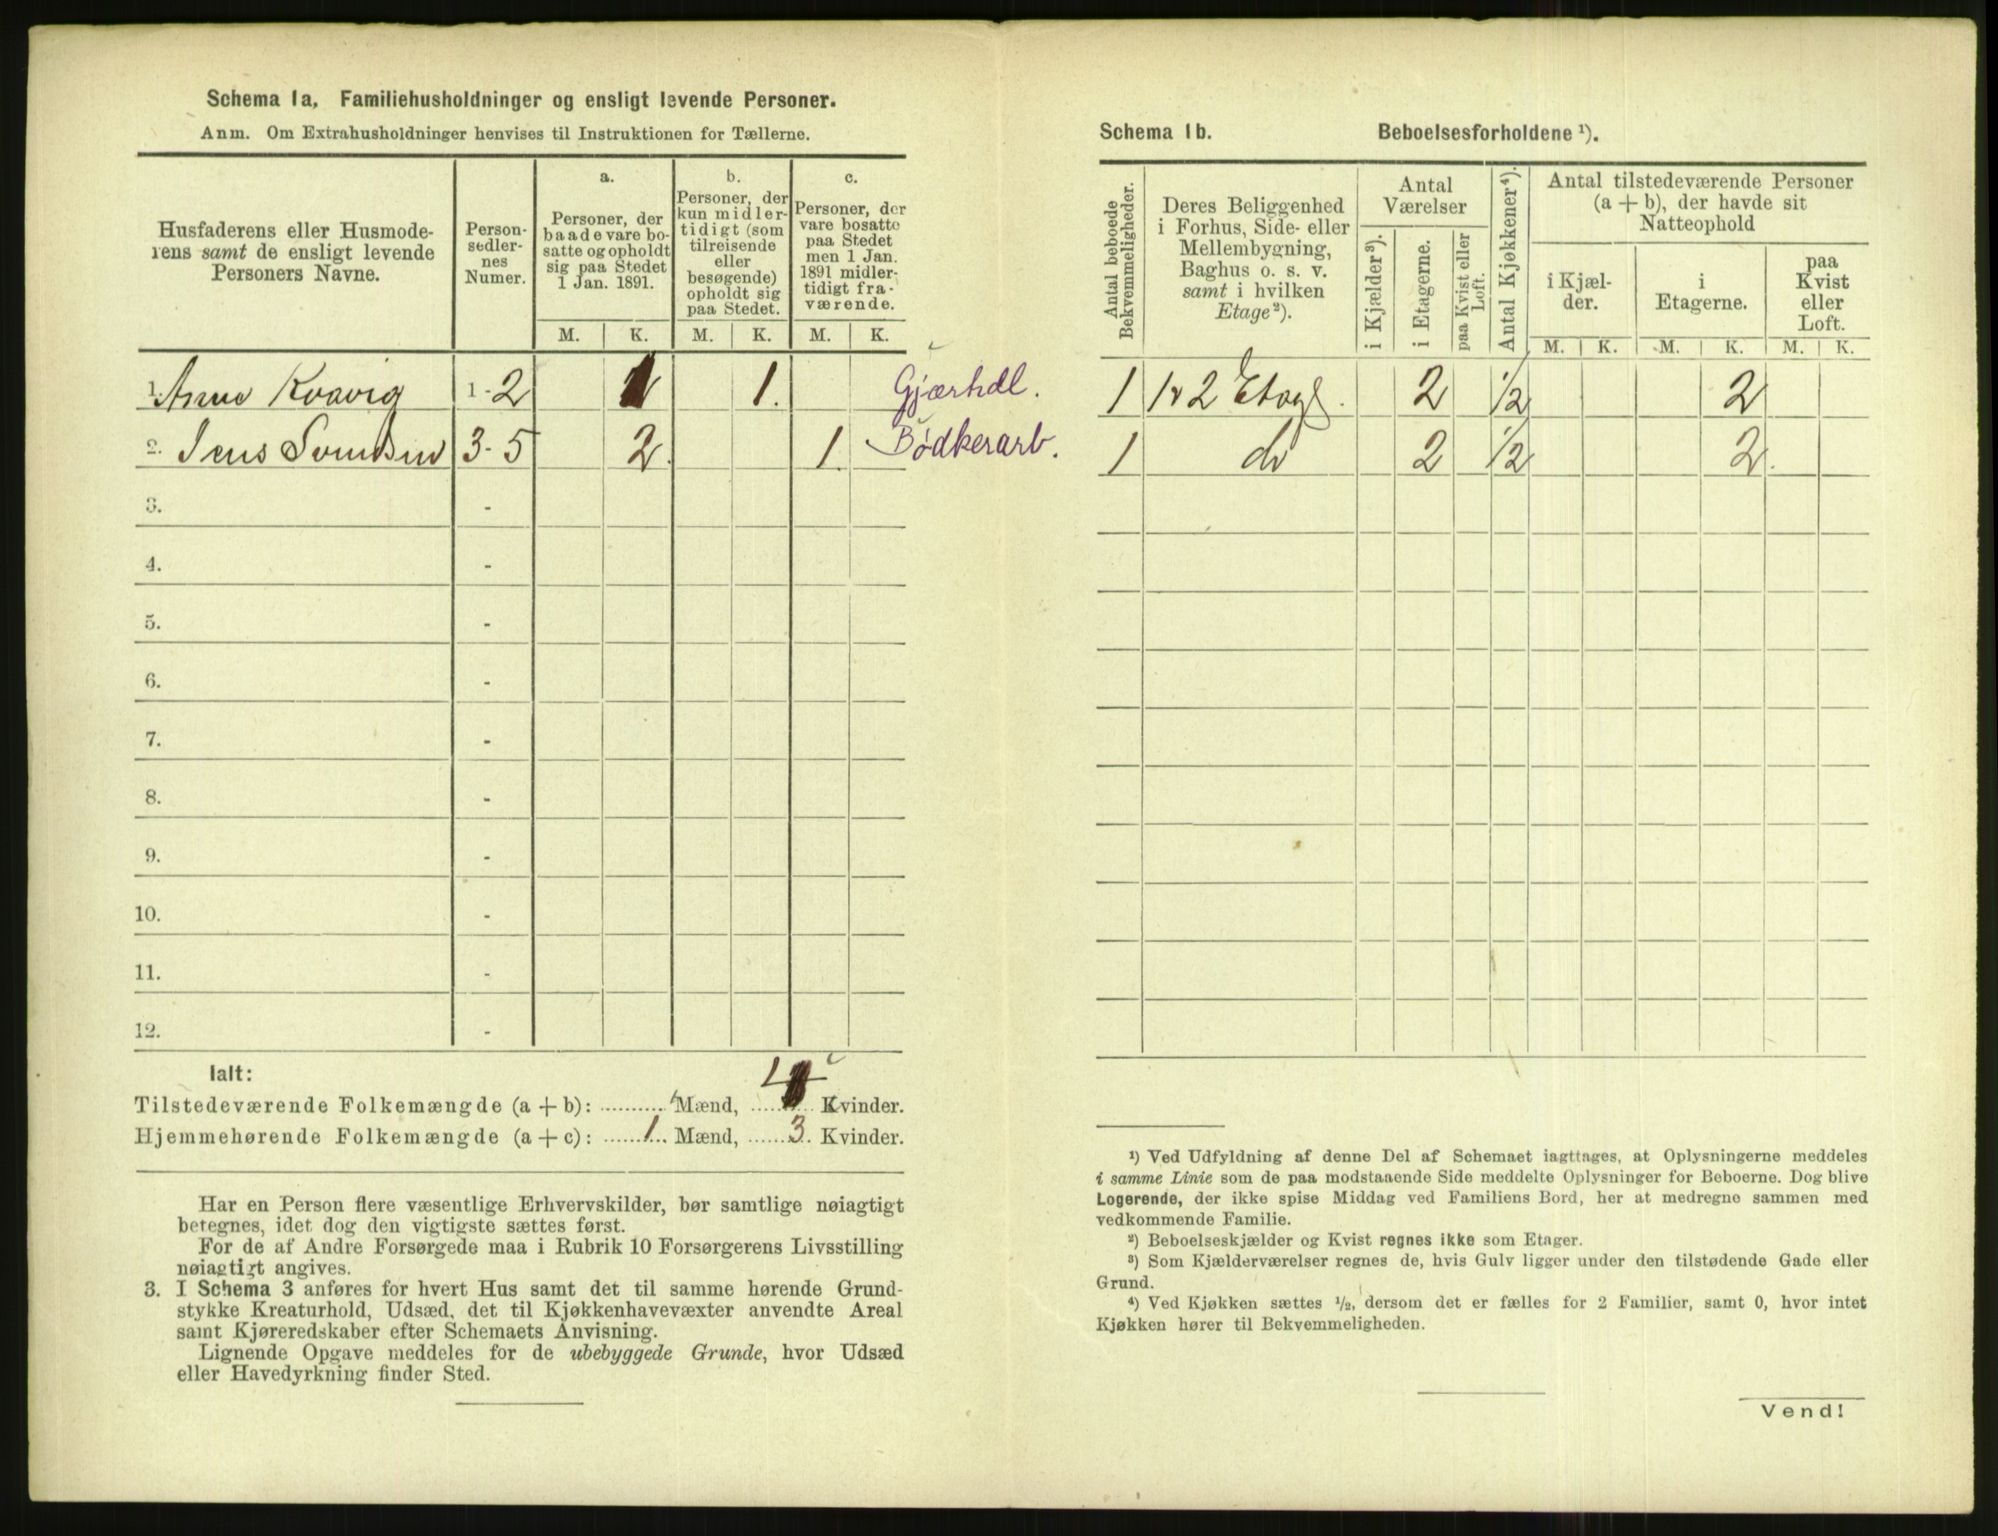 Schema 1a, Familiehusholdninger og ensligt levende Personer.
Anm. Om Extrahusholdninger henvises til Instruktionen for Tællerne.
Husfaderens eller Husmode-
rens samt de ensligt levende
Personers Navne.
Person-
sedler-
nes
Numer.
a.
Personer, der
baade vare bo-
satte og opholdt
sig paa Stedet
1 Jan. 1891.
b.
Personer, der
kun midler-
tidigt (som
tilreisende
eller
besøgende)
opholdt sig
paa Stedet.
c.
Personer, der
vare bosatte
paa Stedet
men 1 Jan.
1891 midler-
tidigt fra-
værende.
M. K. M. K. M. K.
1. Anne Kvavig 1-2 1 1. Gjærhdl.
2. Jens Svendsen 3-5 2 1. Bødkerarb.
3. -
4. -
5. -
6. -
7. -
8. -
9. -
10. -
11. -
12. -
Ialt:
Tilstedeværende Folkemængde (a + b): Mænd, 4 Kvinder.
Hjemmehørende Folkemængde (a + c): 1 Mænd, 3 Kvinder.
Har en Person flere væsentlige Erhvervskilder, bør samtlige nøiagtigt
betegnes, idet dog den vigtigste sættes først.
For de af Andre Forsørgede maa i Rubrik 10 Forsørgerens Livsstilling
nøiagtigt angives.
3. I Schema 3 anføres for hvert Hus samt det til samme hørende Grund-
stykke Kreaturhold, Udsæd, det til Kjøkkenhavevæxter anvendte Areal
samt Kjøreredskaber efter Schemaets Anvisning.
Lignende Opgave meddeles for de ubebyggede Grunde, hvor Udsæd
eller Havedyrkning finder Sted.
Schema 1b. Beboelsesforholdene ¹).
Antal beboede
Bekvemmeligheder.
Deres Beliggenhed
i Forhus, Side- eller
Mellembygning,
Baghus o. s. v.
samt i hvilken
Etage²).
Antal
Værelser
i Kjælder³).
i Etagerne.
paa Kvist eller
Loft.
Antal Kjøkkener⁴).
Antal tilstedeværende Personer
(a + b), der havde sit
Natteophold
i Kjæl-
der.
i
Etagerne.
paa
Kvist
eller
Loft.
M. K. M. K. M. K.
1 2 Etage. 2 1/2 2
1 do 2 1/2 2.
¹) Ved Udfyldning af denne Del af Schemaet iagttages, at Oplysningerne meddeles
i samme Linie som de paa modstaaende Side meddelte Oplysninger for Beboerne. Dog blive
Logerende, der ikke spise Middag ved Familiens Bord, her at medregne sammen med
vedkommende Familie.
²) Beboelseskjælder og Kvist regnes ikke som Etager.
³) Som Kjælderværelser regnes de, hvis Gulv ligger under den tilstødende Gade eller
Grund.
⁴) Ved Kjøkken sættes ½, dersom det er fælles for 2 Familier, samt 0, hvor intet
Kjøkken hører til Bekvemmeligheden.
Vend!